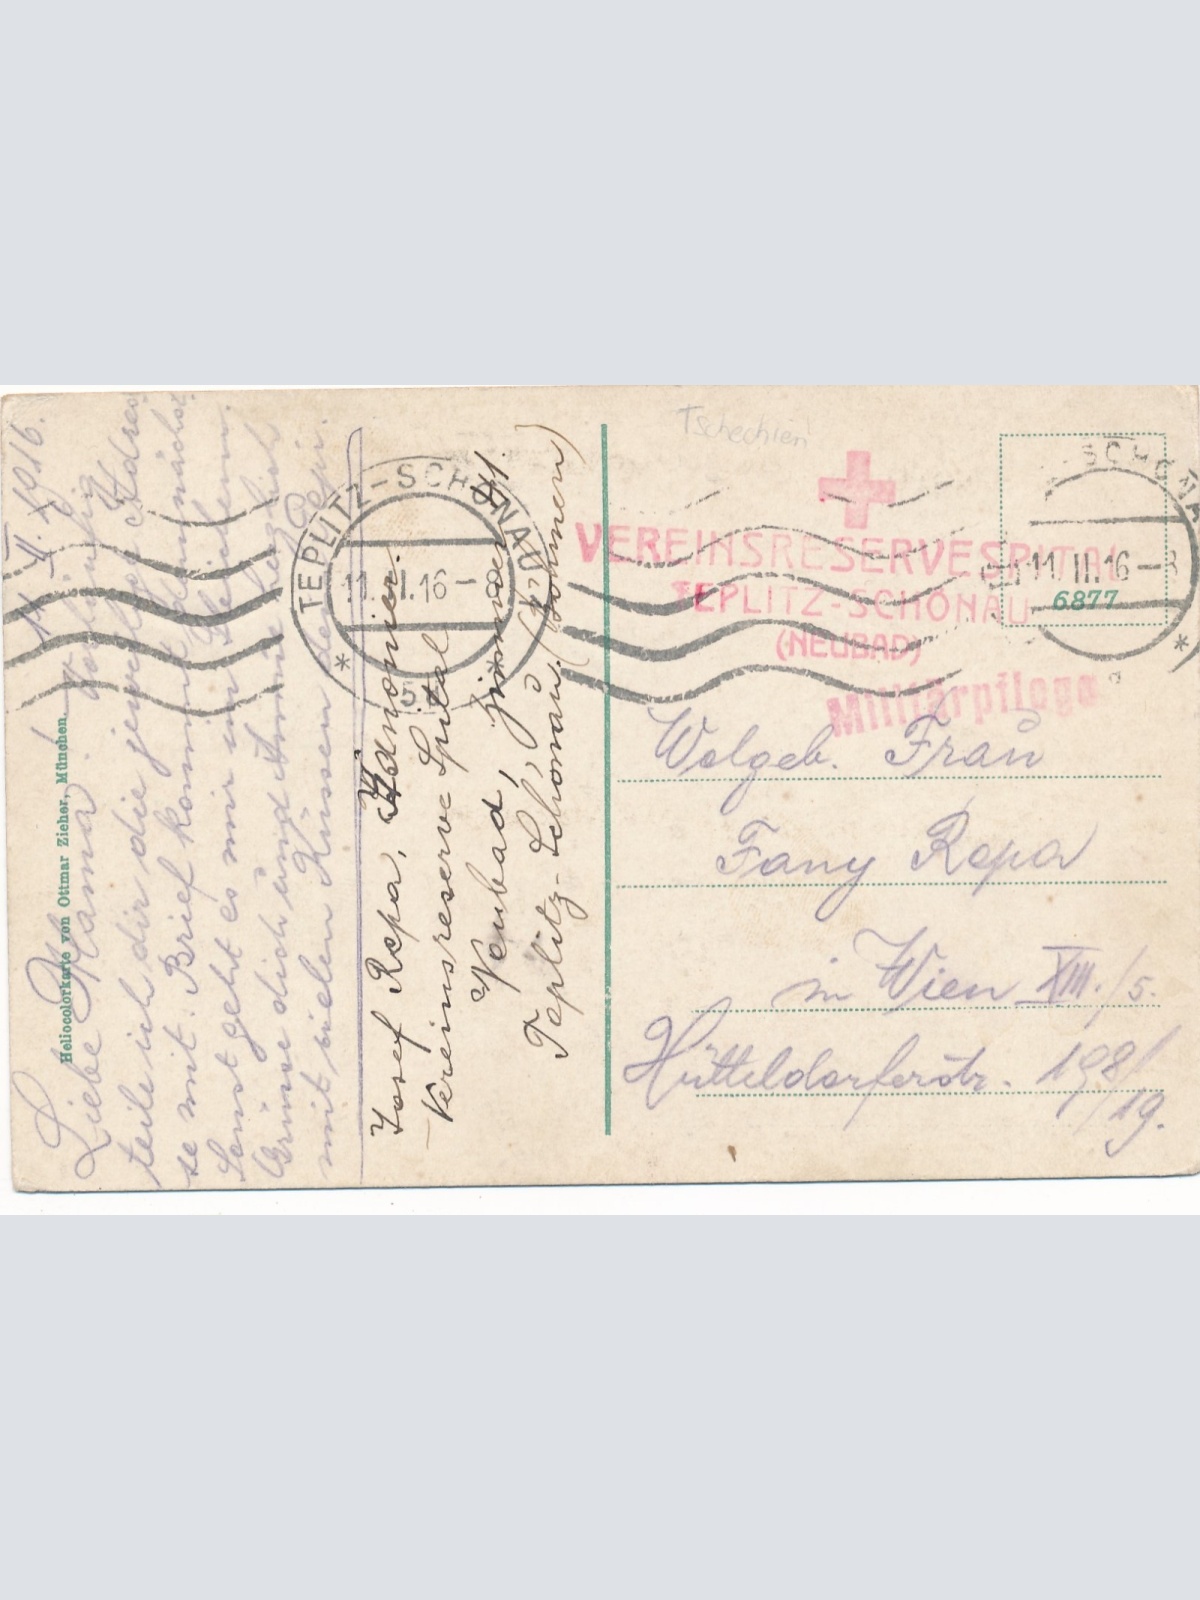 Tschechien
TEPLITZ-SCHÖNAU
11.II.16-8
VEREINSRESERVESPITAL
TEPLITZ-SCHÖNAU
(NEUBAD)
Militärpflege
SCHÖNA
11.II.16-8
6877
Wolgeb. Frau
Fany Repa
in Wien XIII./5.
Hütteldorferstr. 198/
19.
Heliocolorkarte von Ottmar Zieher, München.
11. II. 1916.
Liebe Mama! Vorläufig
teile ich dir die jeweilige Adres-
se mit. Brief kommt demnächst.
Sonst geht es mir im
Grüsse dich und Annie herzlich
mit vielen Küssen dein Pepi.
Josef Repa, Kanonier.
Vereinsreserve Spital
Neubad, Zimmer 44.
Teplitz-Schönau. (Böhmen)